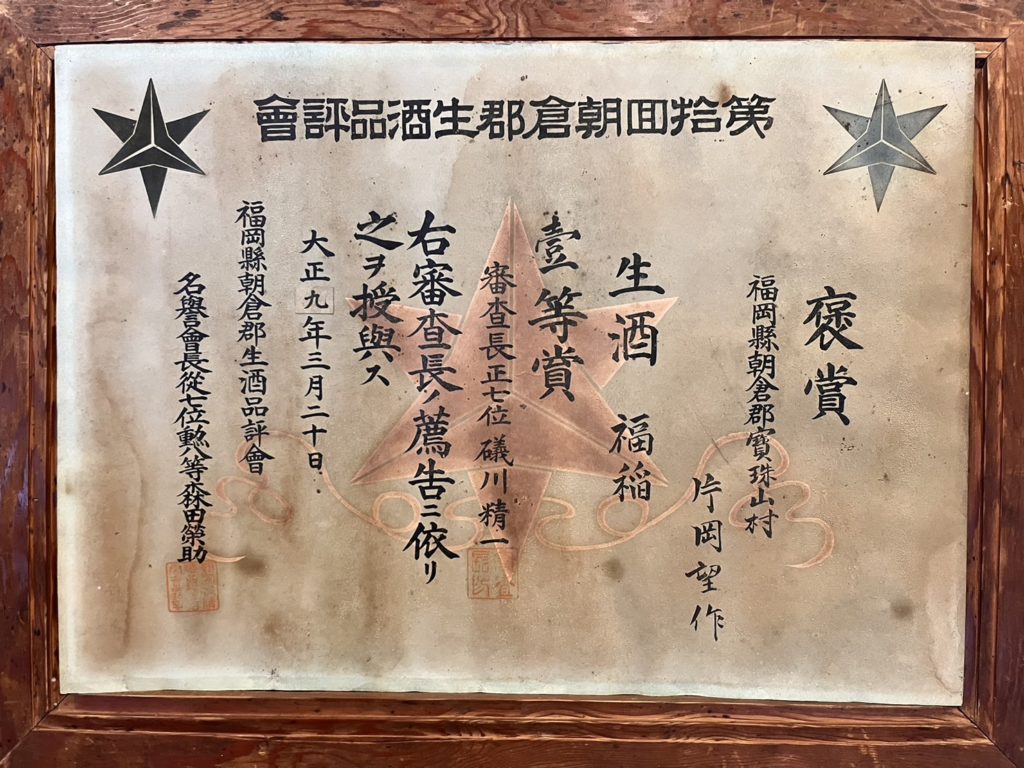 第拾囬朝倉郡生酒品評會
褒賞
福岡縣朝倉郡寶珠山村
片岡望作
生酒 福稲
壹等賞
審査長正七位 礒川精一
右審査長ノ薦告ニ依リ
之ヲ授與ス
大正九年三月二十日
福岡縣朝倉郡生酒品評會
名譽會長從七位勲八等森田榮助